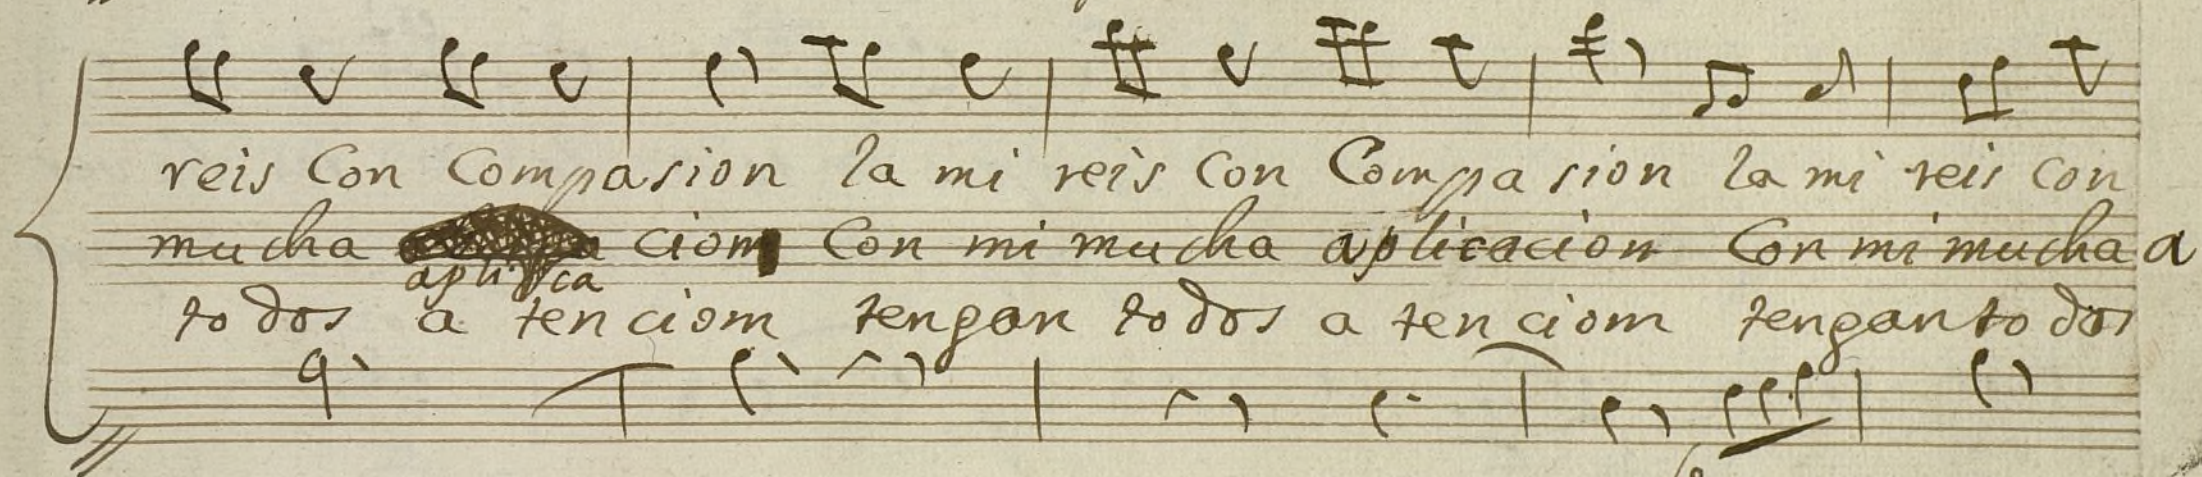 reis Con Compasion la mi reis Con Compasion la mi reis con
mucha aplica ciom Con mi mucha aplicacion Con mi mucha a
todos a tenciom tengan todos a tenciom tengan todos